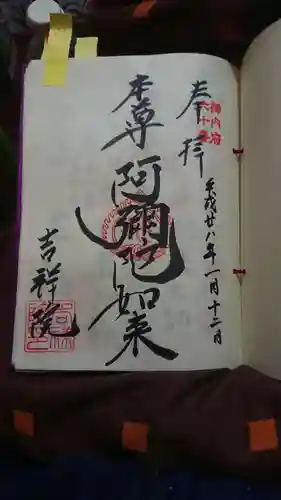 奉拝
御内府
六十番
平成廿八年一月十二日
本尊
阿彌陀如来
吉祥院